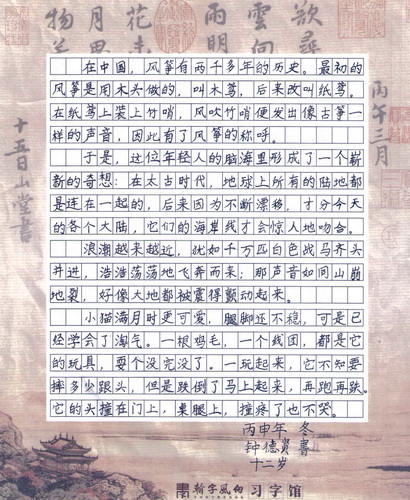 在中国，风筝有两千多年的历史。最初的
风筝是用木头做的，叫木鸢，后来改叫纸鸢。
在纸鸢上装上竹哨，风吹竹哨便发出像古筝一
样的声音，因此有了风筝的称呼。
于是，这位年轻人的脑海里形成了一个崭
新的奇想：在太古时代，地球上所有的陆地都
是连在一起的，后来因为不断漂移，才分今天
的各个大陆，它们的海岸线才会惊人地吻合。
浪潮越来越近，犹如千万匹白色战马齐头
并进，浩浩荡荡地飞奔而来；那声音如同山崩
地裂，好像大地都被震得颤动起来。
小猫满月时更可爱，腿脚还不稳，可是已
经学会了淘气。一根鸡毛，一个线团，都是它
的玩具，耍个没完没了。一玩起来，它不知要
摔多少跟头，但是跌倒了马上起来，再跑再跌。
它的头撞在门上，桌腿上，撞疼了也不哭。
丙申年 冬
钟德贤 書
十二岁
丙午三月
十五日山堂書
翰字風向 习字馆